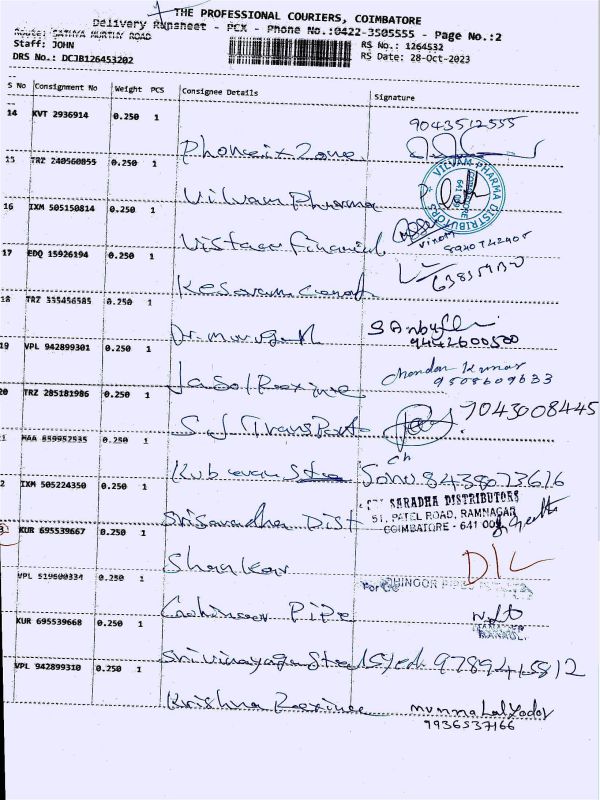 THE PROFESSIONAL COURIERS, COIMBATORE
Delivery Runsheet - PCX - Phone No.:0422-3505555 - Page No.:2
Route: SATHYA MURTHY ROAD
Staff: JOHN
DRS No.: DCJB126453202
RS No.: 1264532
RS Date: 28-Oct-2023
S No Consignment No Weight PCS Consignee Details Signature
14 KVT 2936914 0.250 1
9043512555
Phoneix Zone
15 TRZ 240560855 0.250 1
Vilvam Pharma
VILVAM PHARMA DISTRIBUTORS
COIMBATORE 641
16 IXM 505150814 0.250 1
Vistaar Financial
17 EDQ 15926194 0.250 1
Kesavam
18 TRZ 335456585 0.250 1
Dr. Murugan
9442600500
19 VPL 942899301 0.250 1
Chandan Kumar
9508609633
20 TRZ 285181986 0.250 1
S J Transport
7043008445
MAA 859952535 0.250 1
Sonu 8438073616
2 IXM 505224350 0.250 1
Sri Saradha Dist
SARADHA DISTRIBUTORS
51, PATEL ROAD, RAMNAGAR
COIMBATORE - 641 009
KUR 695539667 0.250 1
Shankar
D/L
VPL 519600334 0.250 1
Coohinoor Pipe
For
KUR 695539668 0.250 1
Sri Vinayaga Steel Syed. 9789415812
VPL 942899310 0.250 1
Krishna
Munna Lal Yadav
9936537166